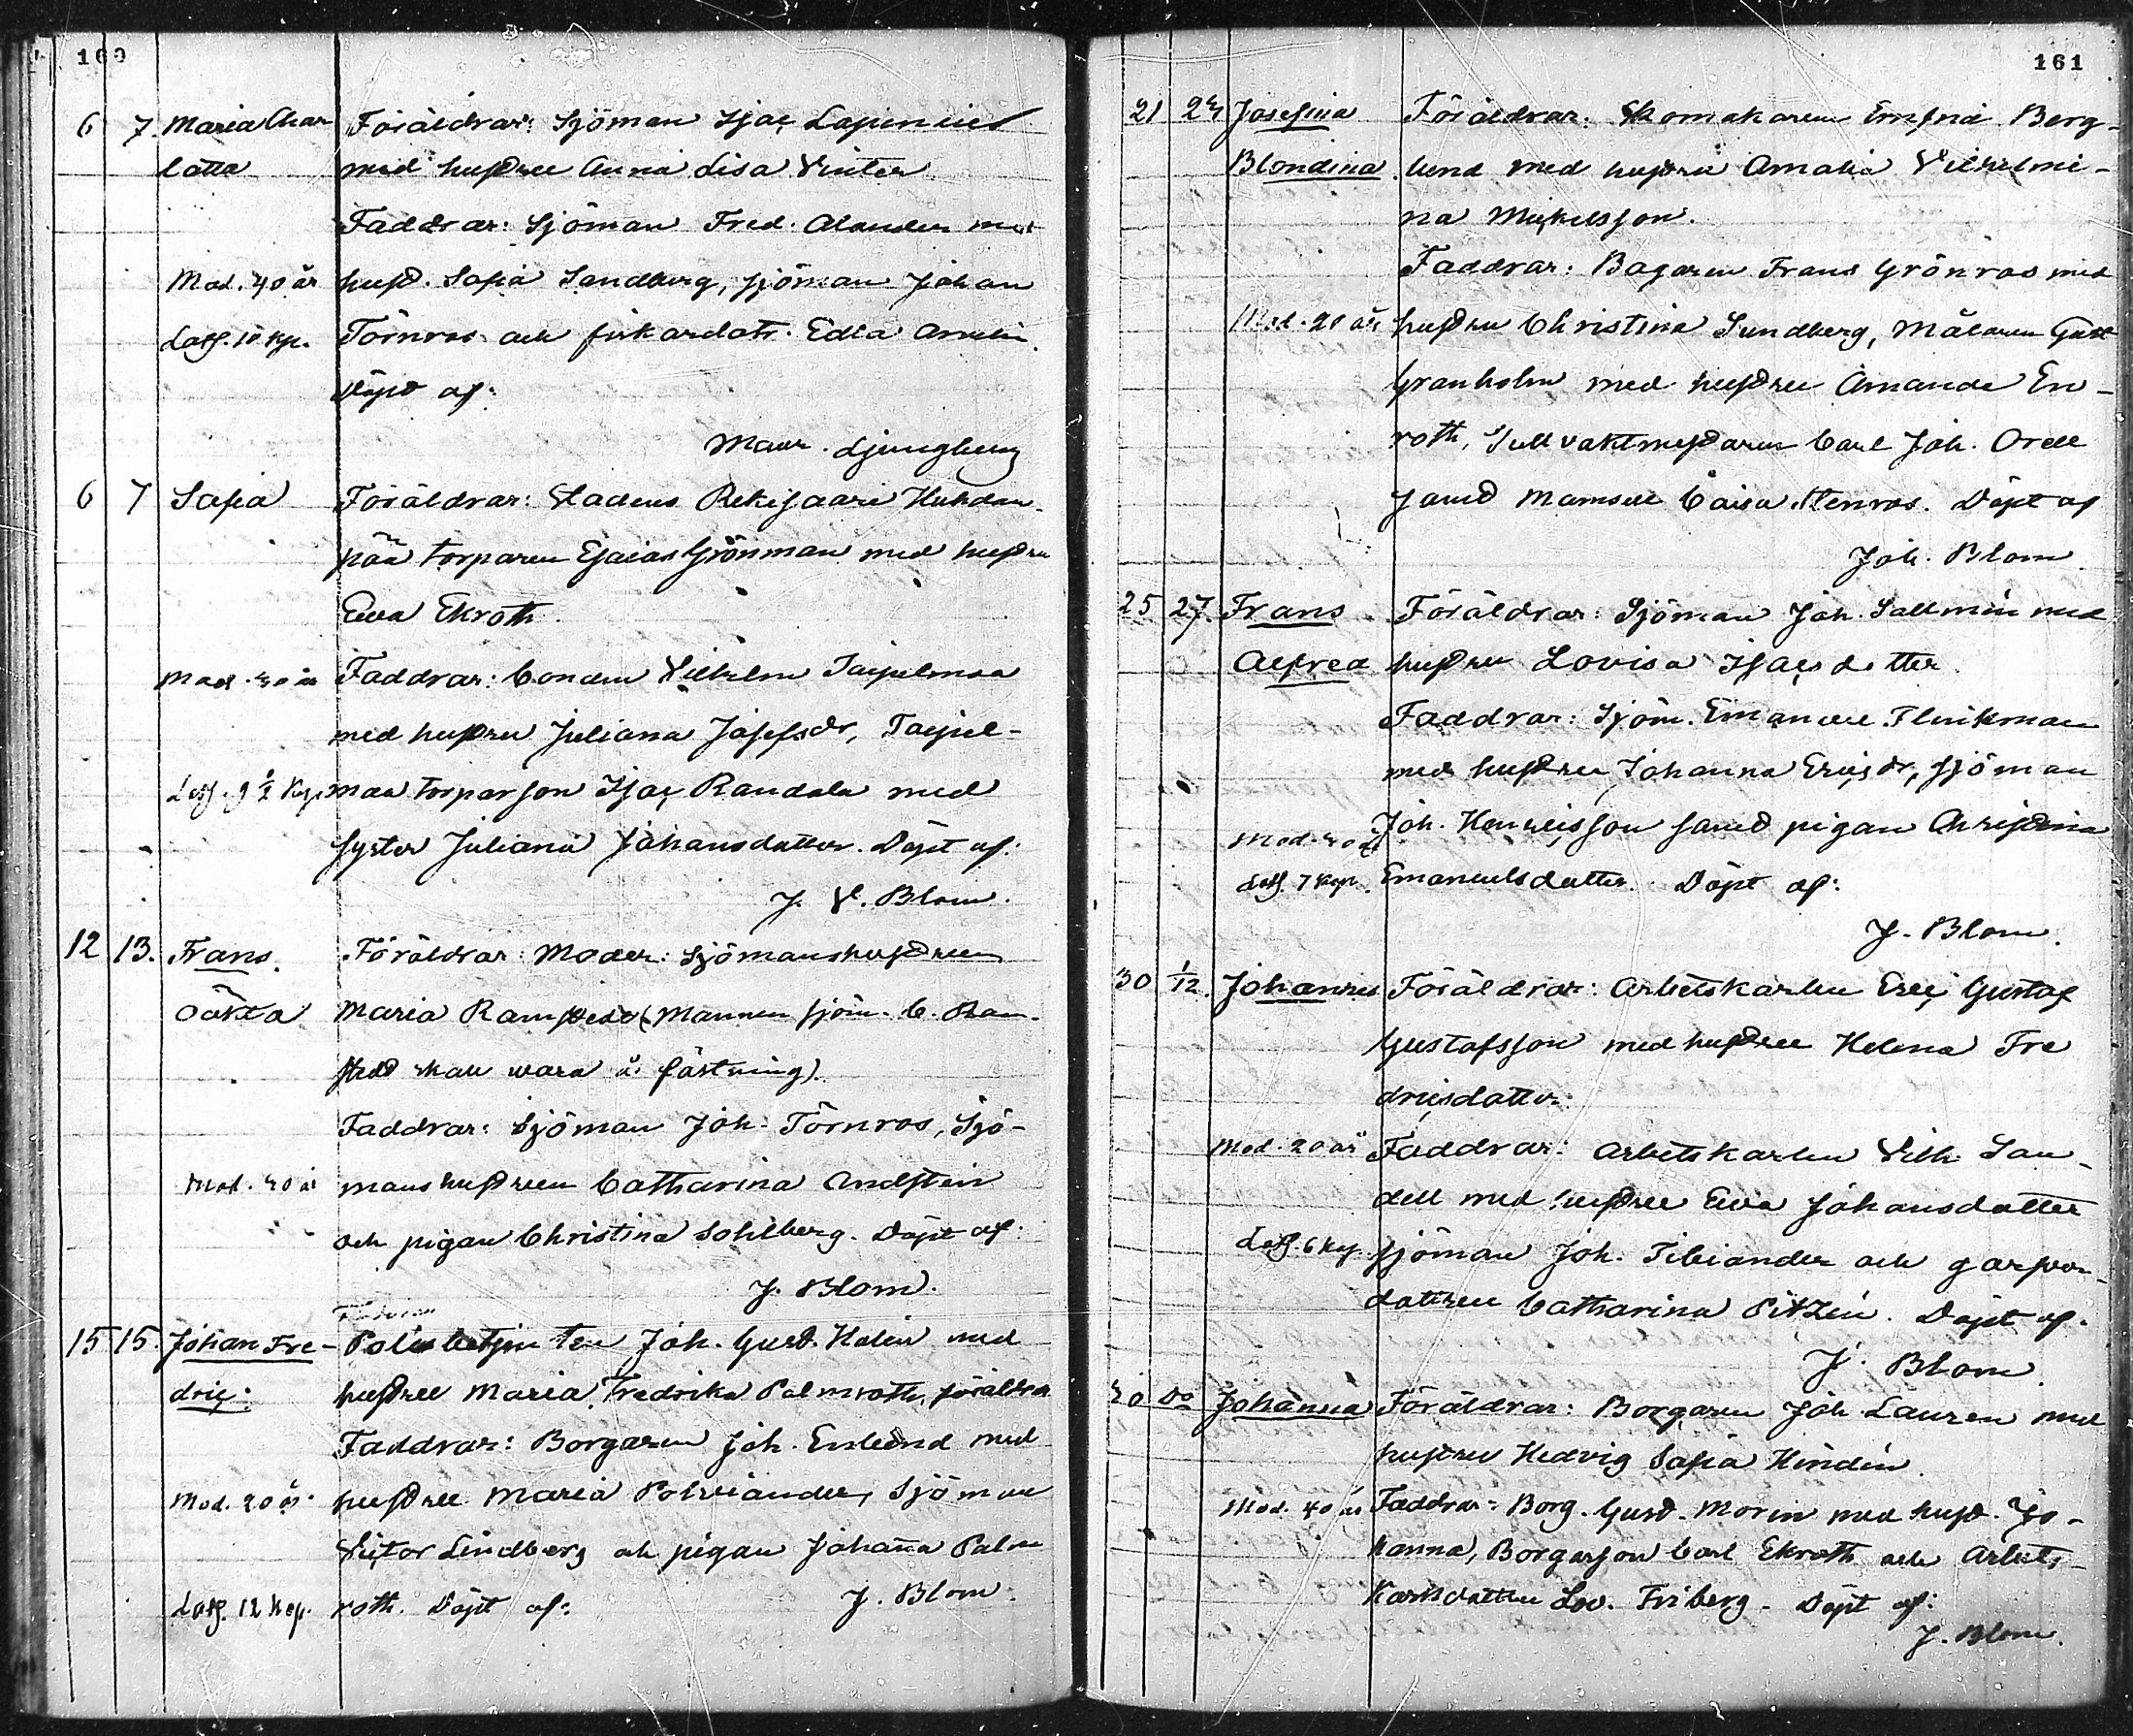 160
6 7. Maria Char Föräldrar: Sjöman Isac Lapinius
lotta med hustru Anna Lisa Vinter
Faddrar: Sjöman Fred. Alander med
Mod. 40 år hust. Sofia Sandberg, sjöman Johan
Latf. 10 kp. Törnros och fiskardotr. Edla Amelin.
Döpt af:
Maur. Ljungberg
6 7 Sofia Föräldrar: Stadens Rekisaari Huhdan
pää torparen Esaias Grönman med hustru
Eva Ekroth.
Mod. 30 år Faddrar: Bonden Vilhelm Taipelmaa
med hustru Juliana Josefsdr, Taipel-
Latf. 9 ½ Kop. maa torparson Isac Randala med
syster Juliana Johansdotter. Döpt af:
J. V. Blom.
12 13. Frans. Föräldrar: Moder: Sjömanshustrun
oäkta Maria Ramstedt (Mannen sjöm. C. Ram-
stedt skall wara å fästning).
Faddrar: Sjöman Joh. Törnros, Sjö-
Mod. 30 år manshustrun Catharina Andstein
och pigan Christina Sohlberg. Döpt af:
J. Blom.
15 15. Johan Fre- Polisbetjenten Joh. Gust. Halin med
dric. hustru Maria Fredrika Palmroth, föräldrar
Faddrar: Borgaren Joh. Enlund med
Mod. 20 år. hustru Maria Polviander, Sjöman
Victor Lindberg och pigan Johanna Palm
Latf. 12 kop. roth. Döpt af: J. Blom.
161
21 24 Josefina Föräldrar: Skomakaren Emfrid Berg-
Blondina. lund med hustru Amalia Vilhelmi-
na Mickelsson.
Faddrar: Bagaren Frans Grönroos med
Mod. 20 år hustru Christina Sundberg, Målaren Gust
Granholm med hustru Amanda En-
roth, Tullvaktmästaren Carl Joh. Orell
samt Mamsell Caisa Stenros. Döpt af
Joh. Blom.
25 27. Frans Föräldrar: Sjöman Joh. Sallmén med
Alfred hustru Lovisa Isacsdotter.
Faddrar: Sjöm. Emanuel Flinkman
med hustru Johanna Ericsdr, sjöman
Mod. 30 år Joh. Henricsson samt pigan Christina
Latf. 7 kop. Emanuelsdotter. Döpt af:
J. Blom.
30 1/12. Johannes Föräldrar: Arbetskarlen Eric Gustaf
Gustafsson med hustru Helena Fre
dricsdotter.
Mod. 20 år Faddrar: Arbetskarlen Vilh. San-
dell med hustru Eva Johansdotter
Latf. 6 kop. sjöman Joh. Tibiander och garfvar-
dottren Catharina Pitzén. Döpt af.
J. Blom.
30 Do Johanna Föräldrar: Borgaren Joh. Lauren med
hustru Hedvig Sofia Hindén.
Mod. 40 år Faddrar: Borg. Gust. Morin med hust. Jo-
hanna, Borgarson Carl Ekroth och Arbets-
karlsdottren Lov. Friberg. Döpt af:
J. Blom.